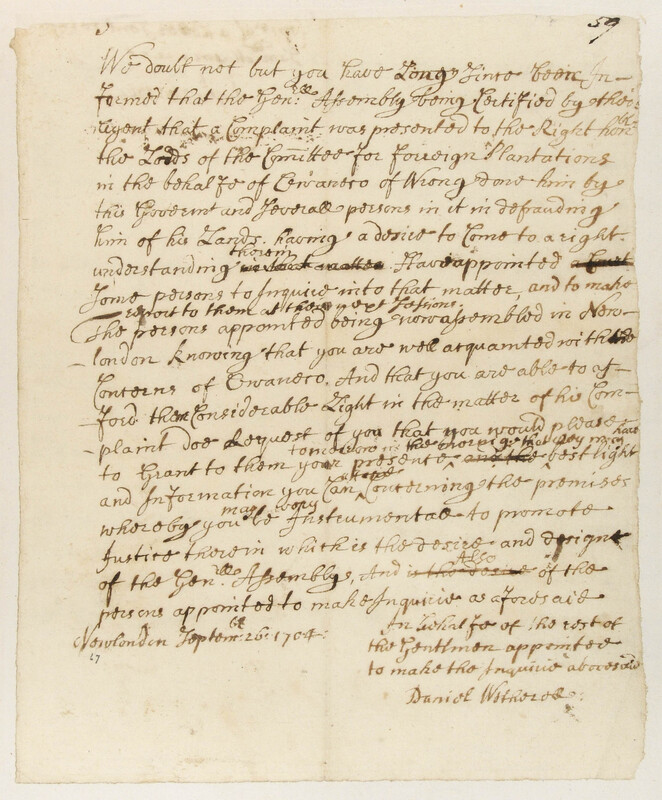 59
We doubt not but you have Long Since been In-
formed that the Gen:ll Assembly being Certified by their
Agent that a Complaint was presented to the Right honble
the Lords of the Comittee for forreign Plantations
in the behalfe of Owaneco of Wrong done him by
this Goverment and Severall persons in it in defrauding
him of his Lands. having a desire to Come to a right
understanding therein Have appointed a Court
Some persons to Inquire into that matter, and to make
report to them at their next Sessions.
The persons appointed being now assembled in New-
london knowing that you are well acquainted with the
Concerns of Owaneco. And that you are able to af-
ford them Considerable Light in the matter of his Com-
plaint doe Request of you that you would please
tomorrow in the morning that they may have
to Grant to them your presence and the best light
and Information you Can Concerning the premises
may
whereby you be Instrumentall to promote
Justice therein which is the desire and designe
Also
of the Gen:ll Assembly, And is the desire of the
persons appointed to make Inquirie as aforesaid
Newlondon Septembr 26: 1704:
27
In behalfe of the rest of
the Gentlmen appointed
to make the Inquirie abovesaid
Daniel Wetherell: